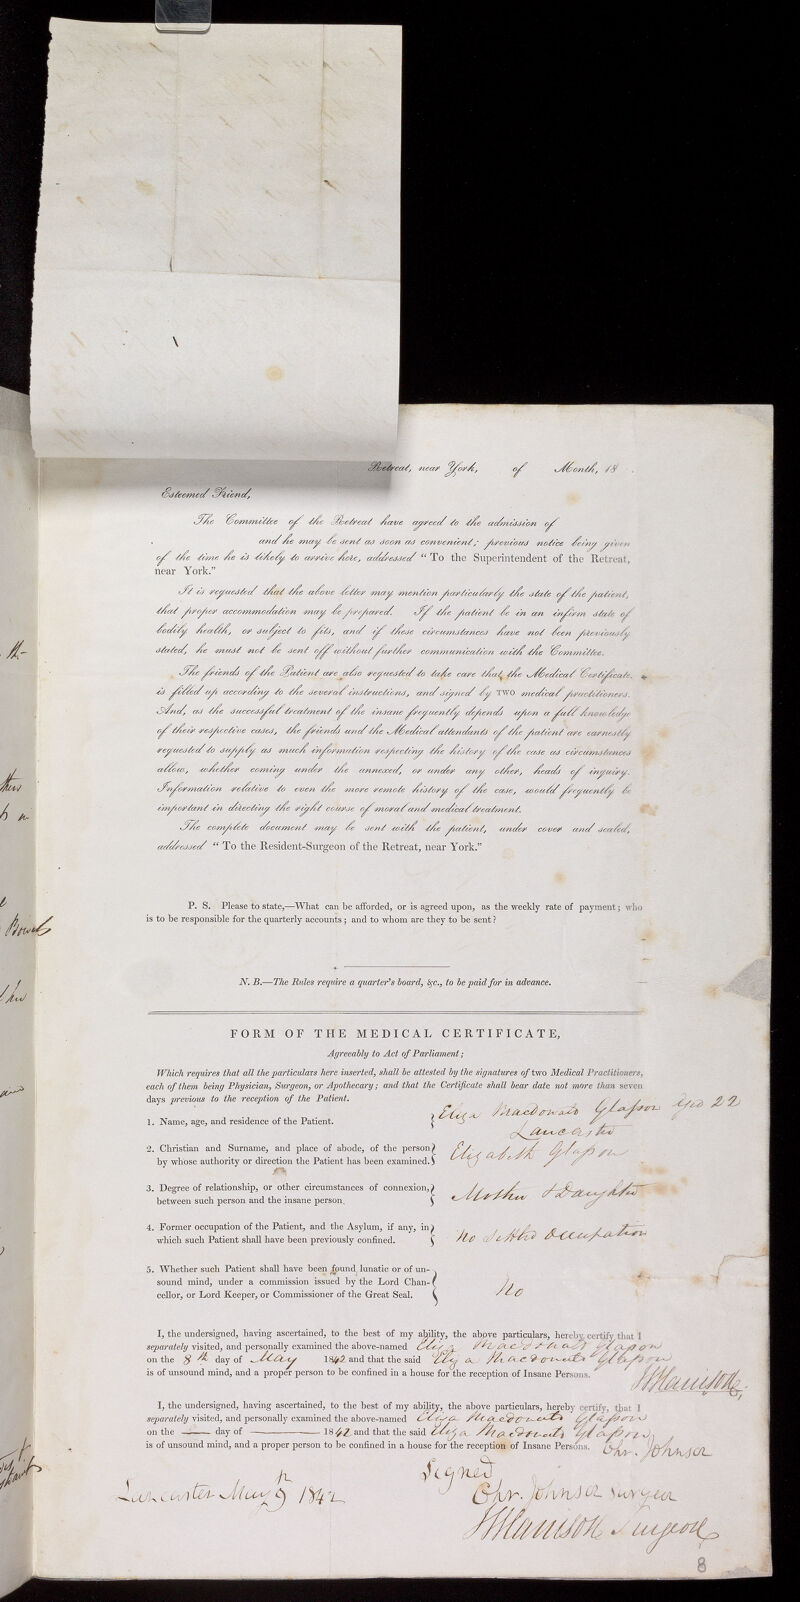 Retreat, near York, of Month, 18 .
Esteemed Friend,
The Committee of the Retreat have agreed to the admission of
and he may be sent as soon as convenient; previous notice being given
of the time he is likely to arrive here, addressed “To the Superintendent of the Retreat,
near York.”
It is requested that the above letter may mention particularly the state of the patient,
that proper accommodation may be prepared. If the patient be in an infirm state of
bodily health, or subject to fits, and if these circumstances have not been previously
stated, he must not be sent off without further communication with the Committee.
The friends of the Patient are also requested to take care that the Medical Certificate
is filled up according to the several instructions, and signed by TWO medical practitioners.
And, as the successful treatment of the insane frequently depends upon a full knowledge
of their respective cases, the friends and the Medical attendants of the patient are earnestly
requested to supply as much information respecting the history of the case as circumstances
allow, whether coming under the annexed, or under any other, heads of inquiry.
Information relative to even the more remote history of the case, would frequently be
important in directing the right course of moral and medical treatment.
The complete document may be sent with the patient, under cover and sealed,
addressed “To the Resident-Surgeon of the Retreat, near York.”
P. S. Please to state,—What can be afforded, or is agreed upon, as the weekly rate of payment; who
is to be responsible for the quarterly accounts; and to whom are they to be sent?
N. B.—The Rules require a quarter's board, &c., to be paid for in advance.
FORM OF THE MEDICAL CERTIFICATE,
Agreeably to Act of Parliament;
Which requires that all the particulars here inserted, shall be attested by the signatures of two Medical Practitioners,
each of them being Physician, Surgeon, or Apothecary; and that the Certificate shall bear date not more than seven
days previous to the reception of the Patient.
1. Name, age, and residence of the Patient. Eliza Macdonald Glasson aged 22
Lancaster
2. Christian and Surname, and place of abode, of the person
by whose authority or direction the Patient has been examined. Elizabeth Glasson
3. Degree of relationship, or other circumstances of connexion,
between such person and the insane person. Mother & Daughter
4. Former occupation of the Patient, and the Asylum, if any, in
which such Patient shall have been previously confined. No settled occupation
5. Whether such Patient shall have been found lunatic or of un-
sound mind, under a commission issued by the Lord Chan-
cellor, or Lord Keeper, or Commissioner of the Great Seal. No
I, the undersigned, having ascertained, to the best of my ability, the above particulars, hereby certify that I
separately visited, and personally examined the above-named Eliza Macdonald Glasson
on the 8th day of May 1842 and that the said Eliza Macdonald Glasson
is of unsound mind, and a proper person to be confined in a house for the reception of Insane Persons.
Harrison
I, the undersigned, having ascertained, to the best of my ability, the above particulars, hereby certify, that I
separately visited, and personally examined the above-named Eliza Macdonald Glasson
on the — day of — 1842 and that the said Eliza Macdonald Glasson
is of unsound mind, and a proper person to be confined in a house for the reception of Insane Persons. Chr. Johnson
Signed
Lancaster May 9th 1842
Chr. Johnson surgeon
Harrison Surgeon
8